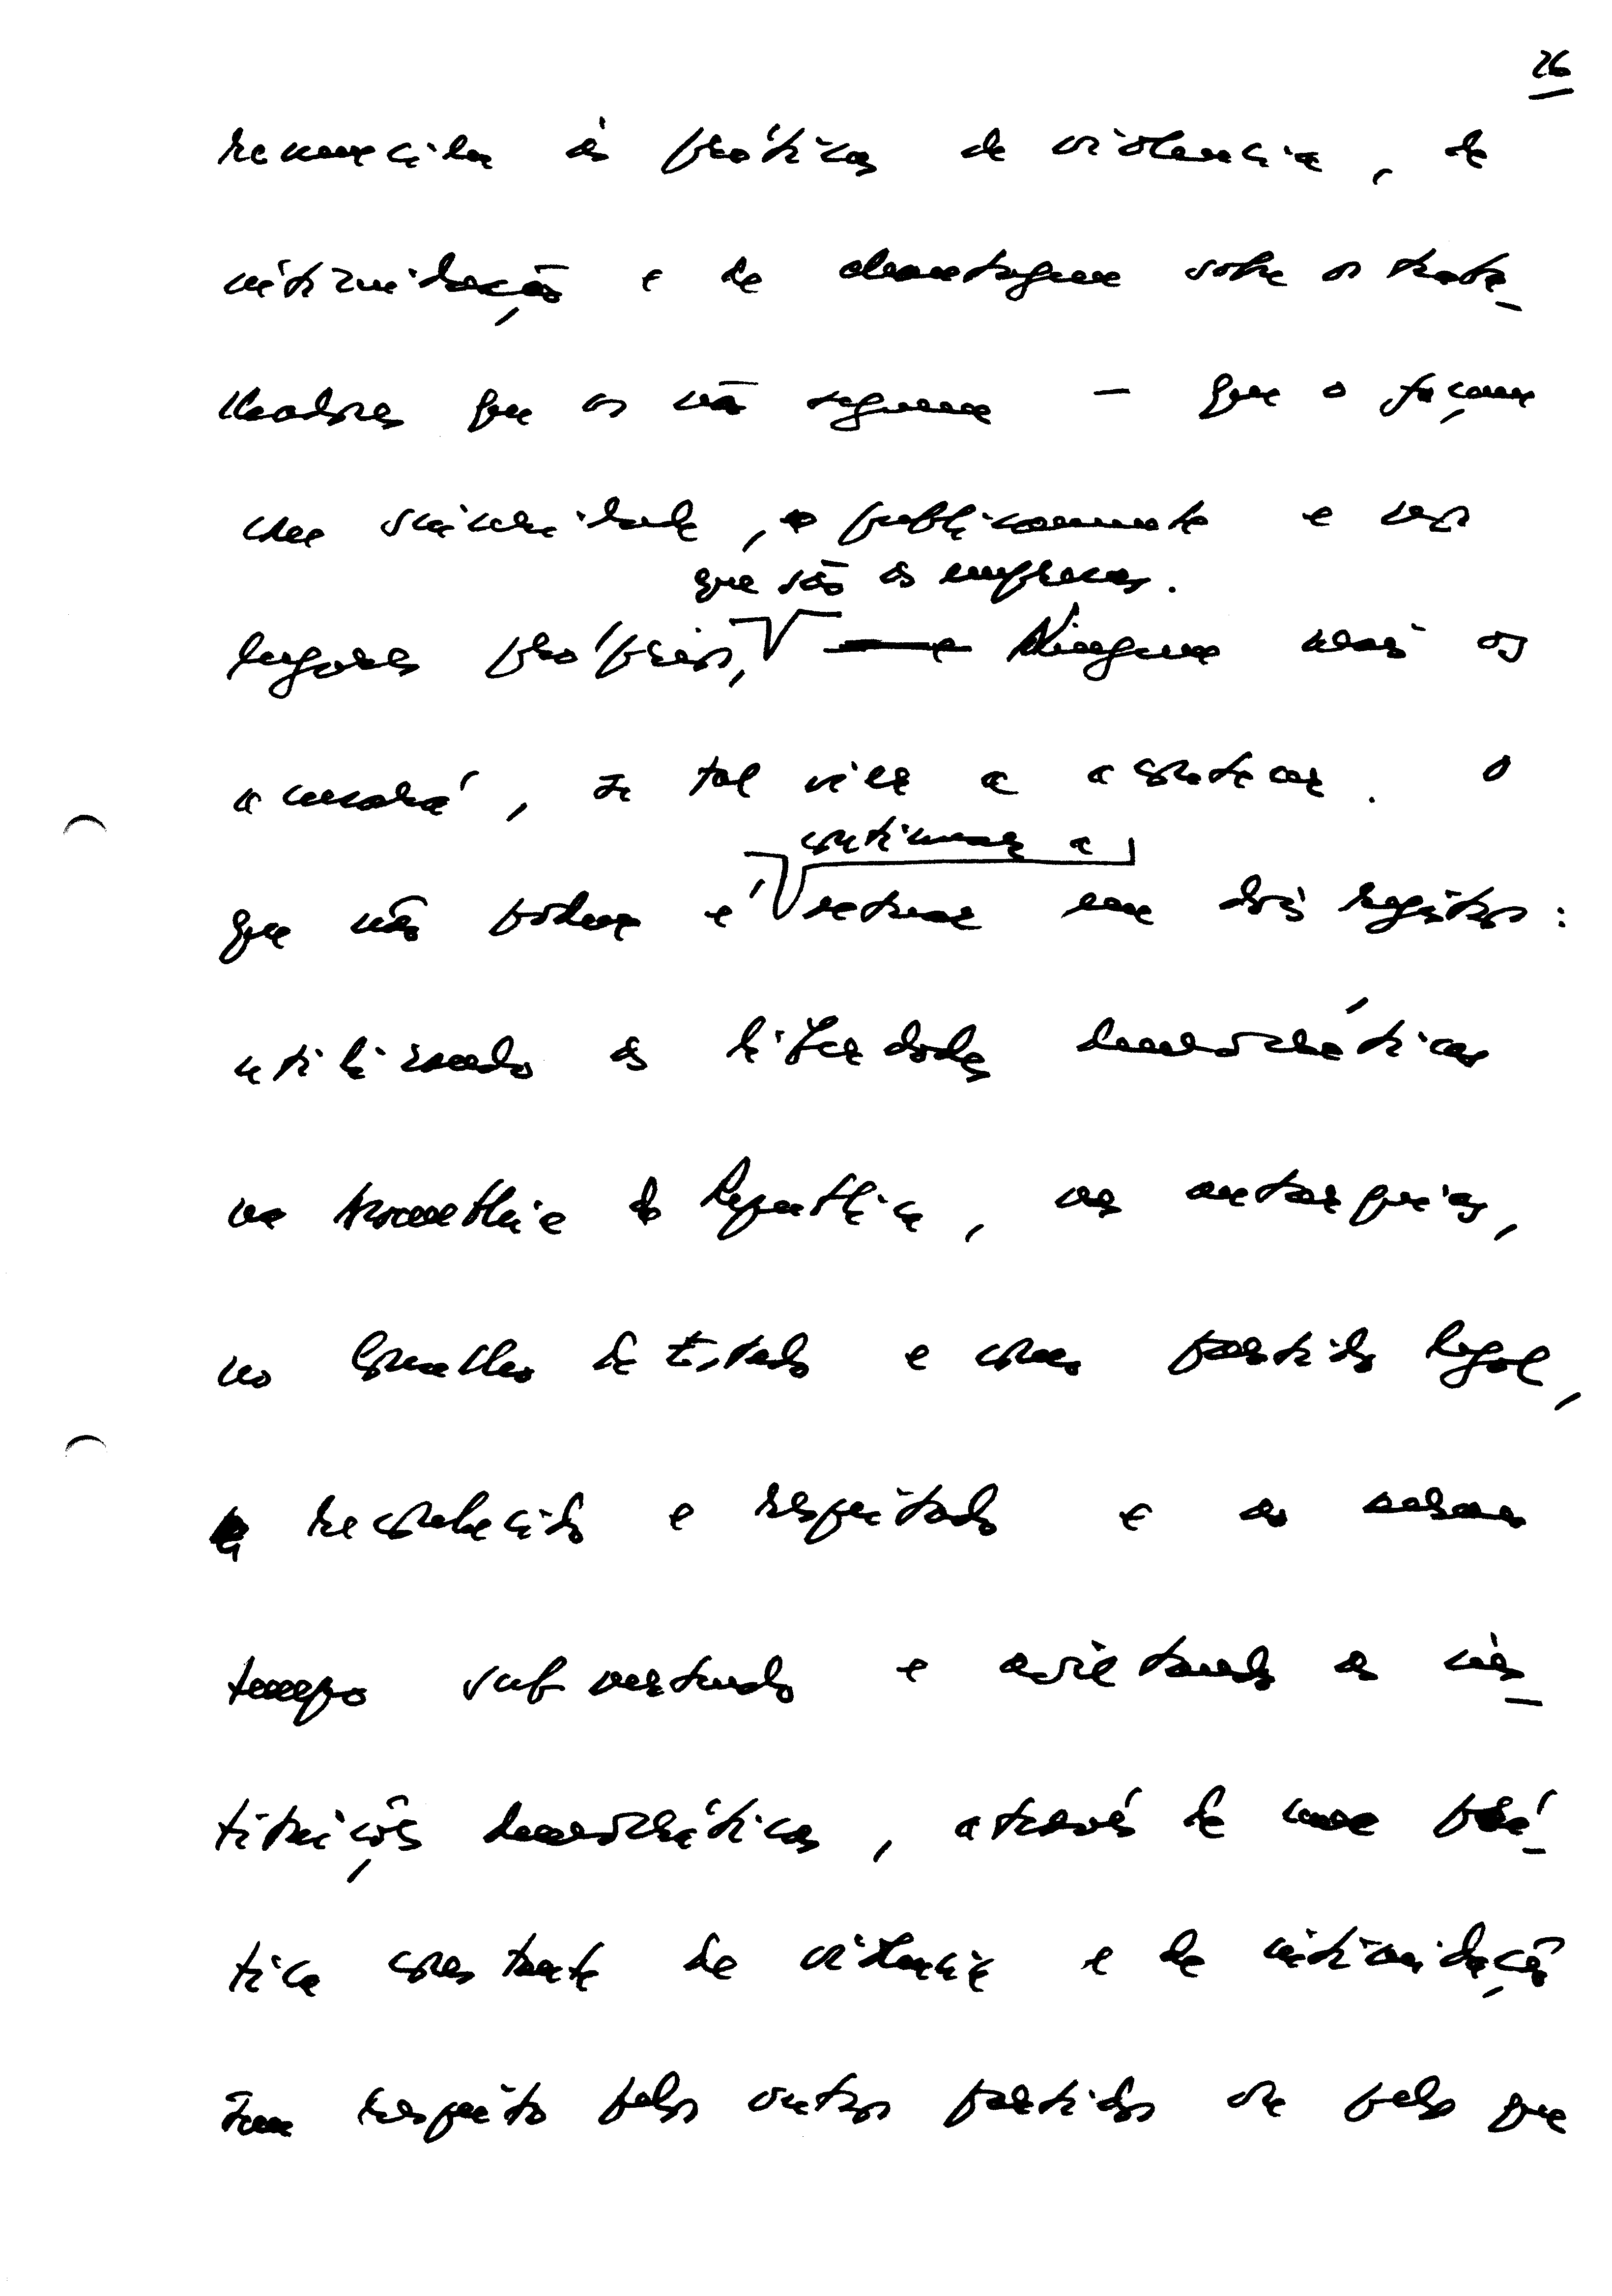 26
renunciar às práticas de violência, de
intimidação e de chantagem sobre os traba-
lhadores que os não seguem — que o façam
com sinceridade, publicamente e nos
que são as empresas.
lugares próprios, Ninguém mais os
amará, se tal vier a acontecer. O
continuar a
que não podem é, actuar em dois registos:
utilizando as liberdades democráticas
na Assembleia da República, nas autarquias,
no Conselho de Estado e como partido legal,
reconhecido e respeitado e ao mesmo
tempo subvertendo e aviltando as ins-
tituições democráticas, através de uma prá-
tica constante de violência e de intimidação
sem respeito pelos outros partidos ou pelos que